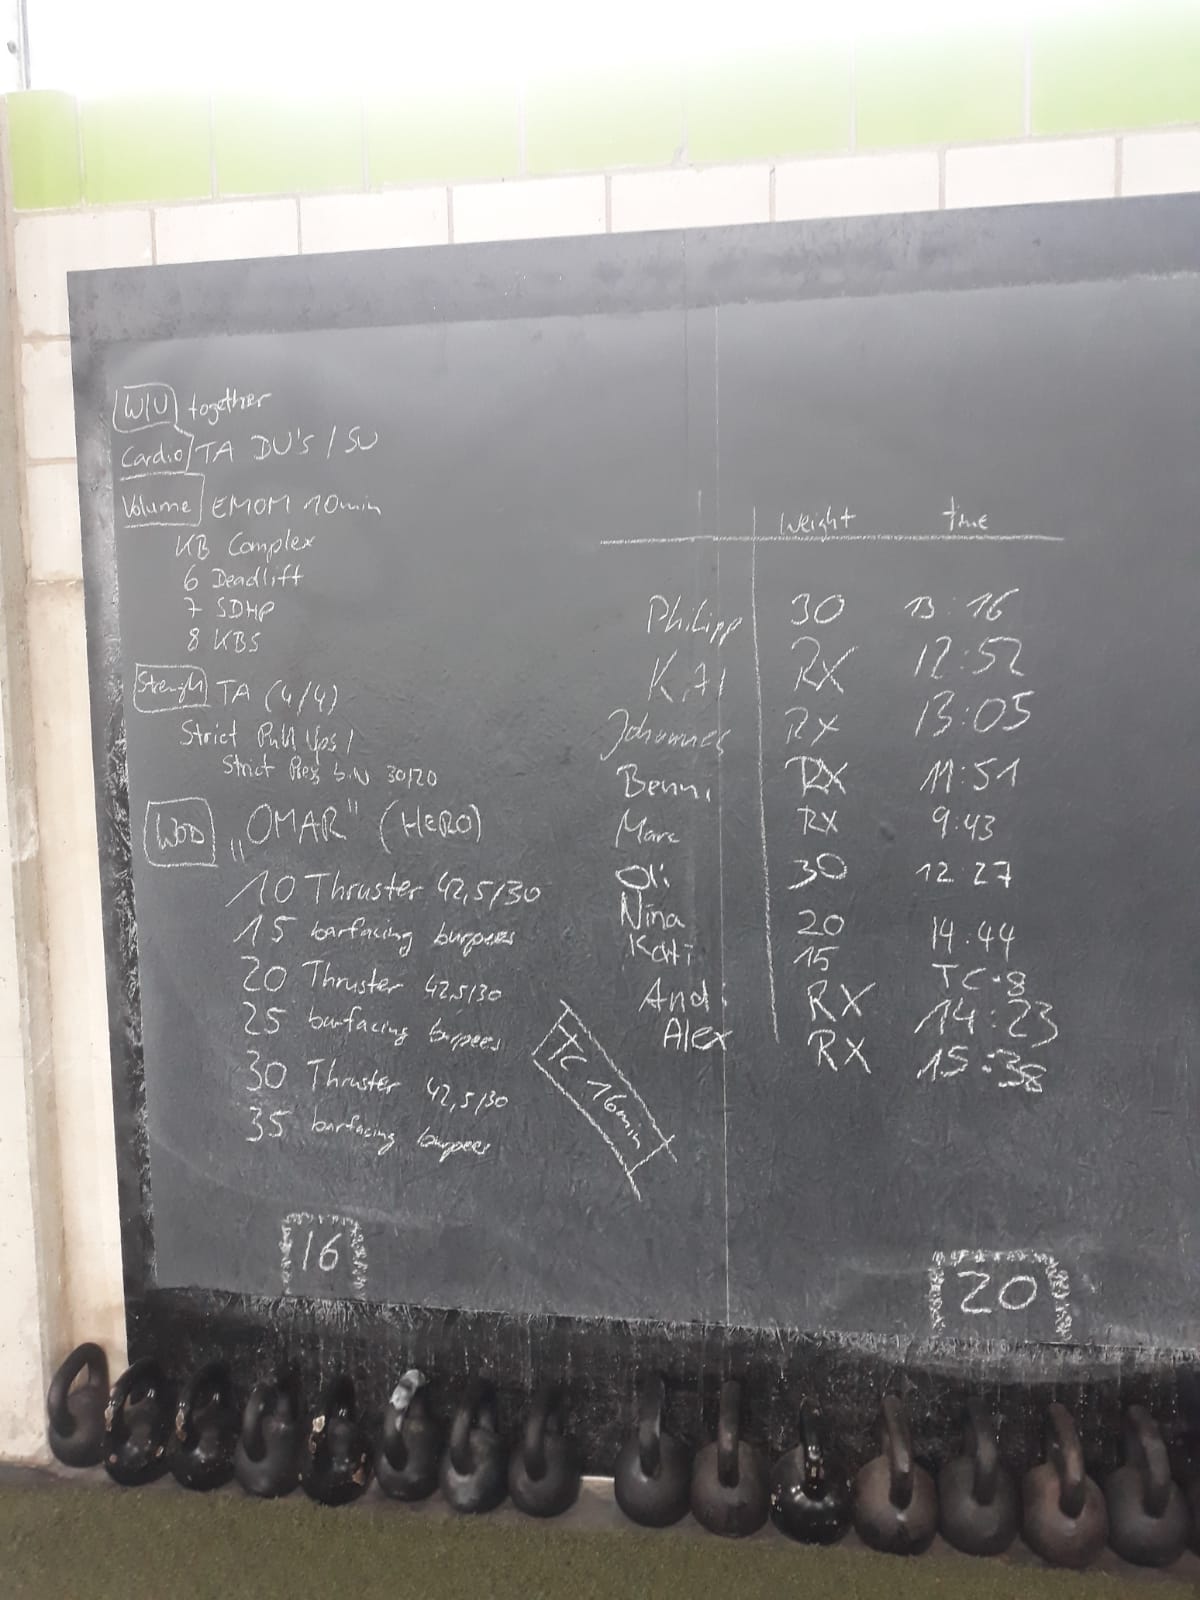 W/U together
Cardio TA DU's / SU
Volume EMOM 10min
KB Complex
6 Deadlift
7 SDHP
8 KBS
Strength TA (4/4)
Strict Pull Ups /
Strict Press 30/20
WOD „OMAR" (HERO)
10 Thruster 42,5/30
15 barfacing burpees
20 Thruster 42,5/30
25 barfacing burpees
30 Thruster 42,5/30
35 barfacing burpees
TC 16min
16
Weight time
Philipp 30 13:16
KAI RX 12:52
Johannes RX 13:05
Benni RX 11:51
Marc RX 9:43
Oli 30 12:27
Nina 20 14:44
Kati 15 TC+8
Andi RX 14:23
Alex RX 15:38
20